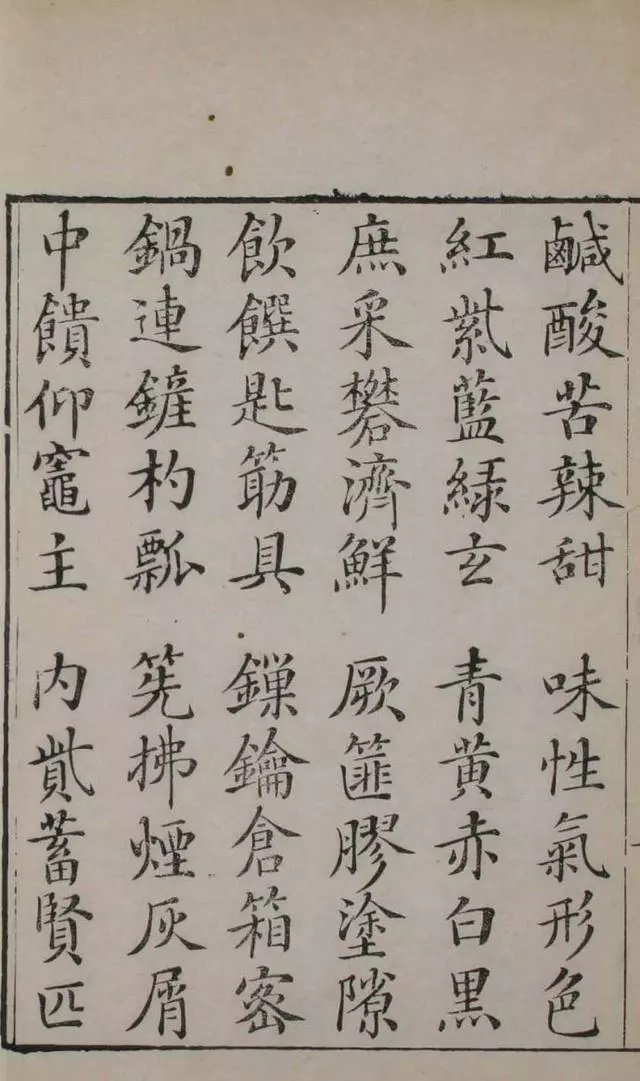 鹹酸苦辣甜 味性氣形色
紅紫藍緑玄 青黄赤白黑
庶采礬濟鮮 厥篚膠塗隙
飲饌匙筯具 鏁鑰倉箱密
鍋連鏟杓瓢 筅拂煙灰屑
中饋仰竈主 内貳蓄賢匹